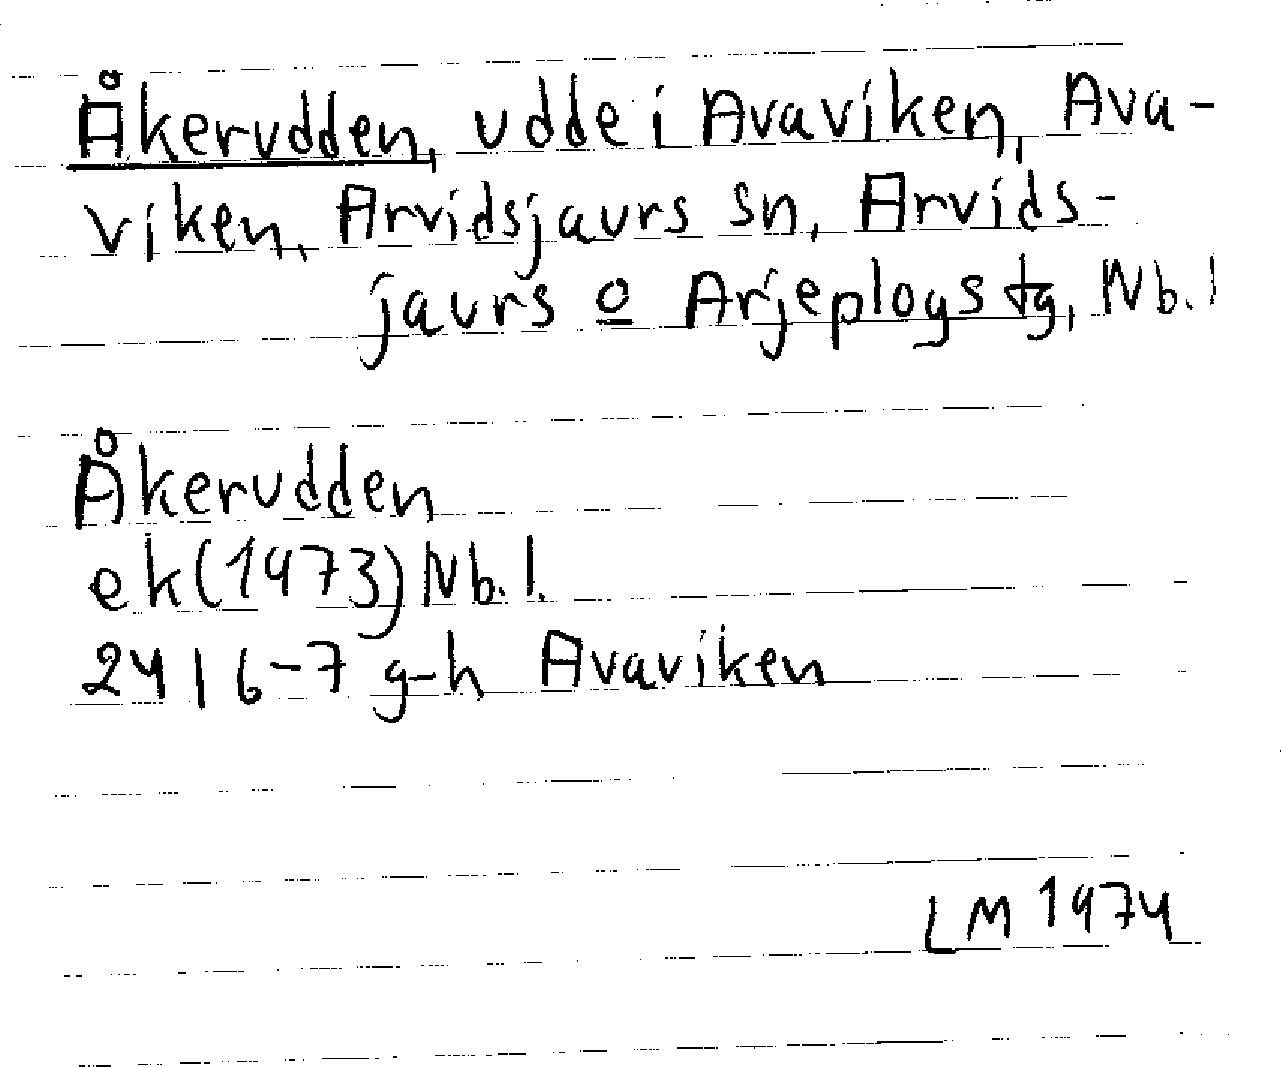 Åkerudden, udde i Avaviken, Ava-
viken, Arvidsjaurs sn, Arvids-
jaurs o Arjeplogs tg, Nb. l
Åkerudden
ek (1973) Nb. l.
24 I 6-7 g-h Avaviken
LM 1974